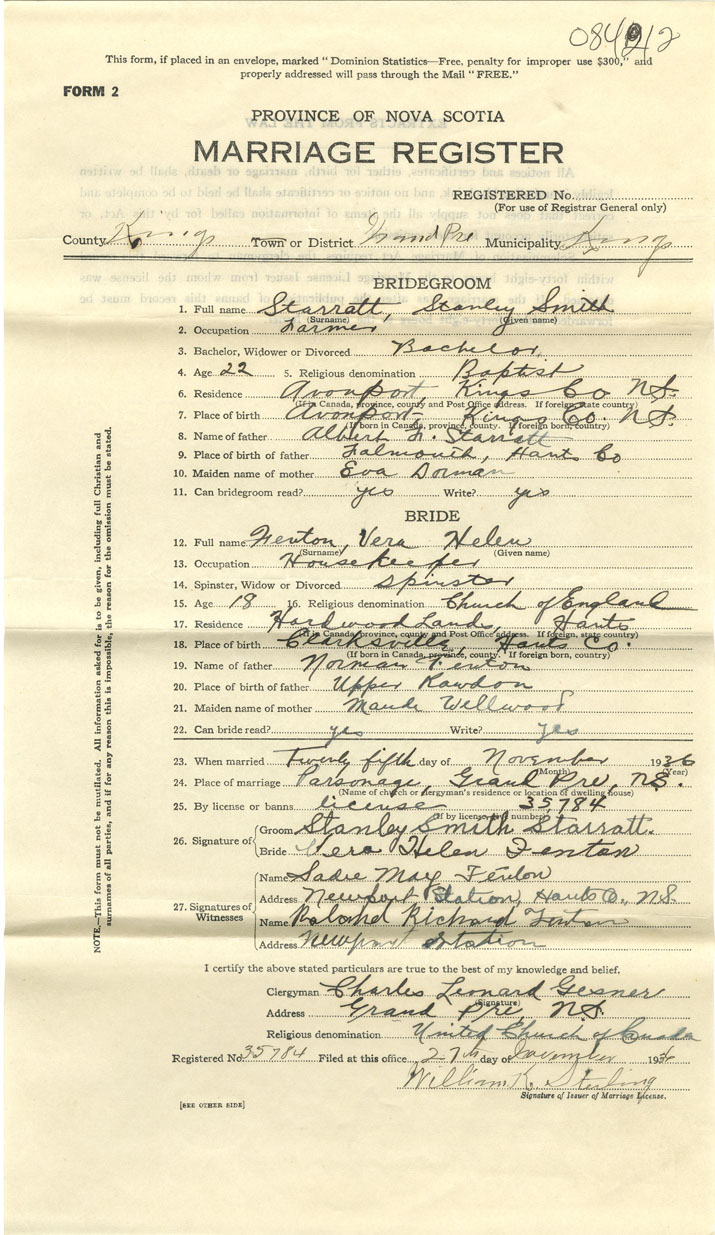 This form, if placed in an envelope, marked "Dominion Statistics—Free, penalty for improper use $300," and
properly addressed will pass through the Mail "FREE."
FORM 2
PROVINCE OF NOVA SCOTIA
MARRIAGE REGISTER
REGISTERED No.
(For use of Registrar General only)
County Kings Town or District Grand Pre Municipality Kings
BRIDEGROOM
1. Full name Starratt, Stanley Smith
(Surname) (Given name)
2. Occupation Farmer
3. Bachelor, Widower or Divorced Bachelor
4. Age 22 5. Religious denomination Baptist
6. Residence Avonport, Kings Co N.S.
(If in Canada, province, county and Post Office address. If foreign, state country)
7. Place of birth Avonport, Kings Co. N.S.
(If born in Canada, province, county. If foreign born, country)
8. Name of father Albert F. Starratt
9. Place of birth of father Falmouth, Hants Co
10. Maiden name of mother Eva Dorman
11. Can bridegroom read? yes Write? yes
BRIDE
12. Full name Fenton, Vera Helen
(Surname) (Given name)
13. Occupation Housekeeper
14. Spinster, Widow or Divorced Spinster
15. Age 18 16. Religious denomination Church of England
17. Residence Hardwood Lands, Hants
(If in Canada, province, county and Post Office address. If foreign, state country)
18. Place of birth Clarksville, Hants Co.
(If born in Canada, province, county. If foreign born, country)
19. Name of father Norman Fenton
20. Place of birth of father Upper Rawdon
21. Maiden name of mother Maude Wellwood
22. Can bride read? yes Write? yes
23. When married Twenty fifth day of November 1936
(Month) (Year)
24. Place of marriage Parsonage, Grand Pre, N.S.
(Name of church or clergyman's residence or location of dwelling house)
25. By license or banns license 35,784
(If by license, give number)
26. Signature of Groom Stanley Smith Starratt.
Bride Vera Helen Fenton
27. Signatures of Witnesses
Name Sadie May Fenton
Address Newport Station, Hants Co., N.S.
Name Roland Richard Fenton
Address Newport Station
I certify the above stated particulars are true to the best of my knowledge and belief.
Clergyman Charles Leonard Gesner
(Signature)
Address Grand Pre, N.S.
Religious denomination United Church of Canada
Registered No. 35784 Filed at this office 27th day of November 1936
William K. Sterling
Signature of Issuer of Marriage License.
[SEE OTHER SIDE]
NOTE.—This form must not be mutilated. All information asked for is to be given, including full Christian and
surnames of all parties, and if for any reason this is impossible, the reason for the omission must be stated.